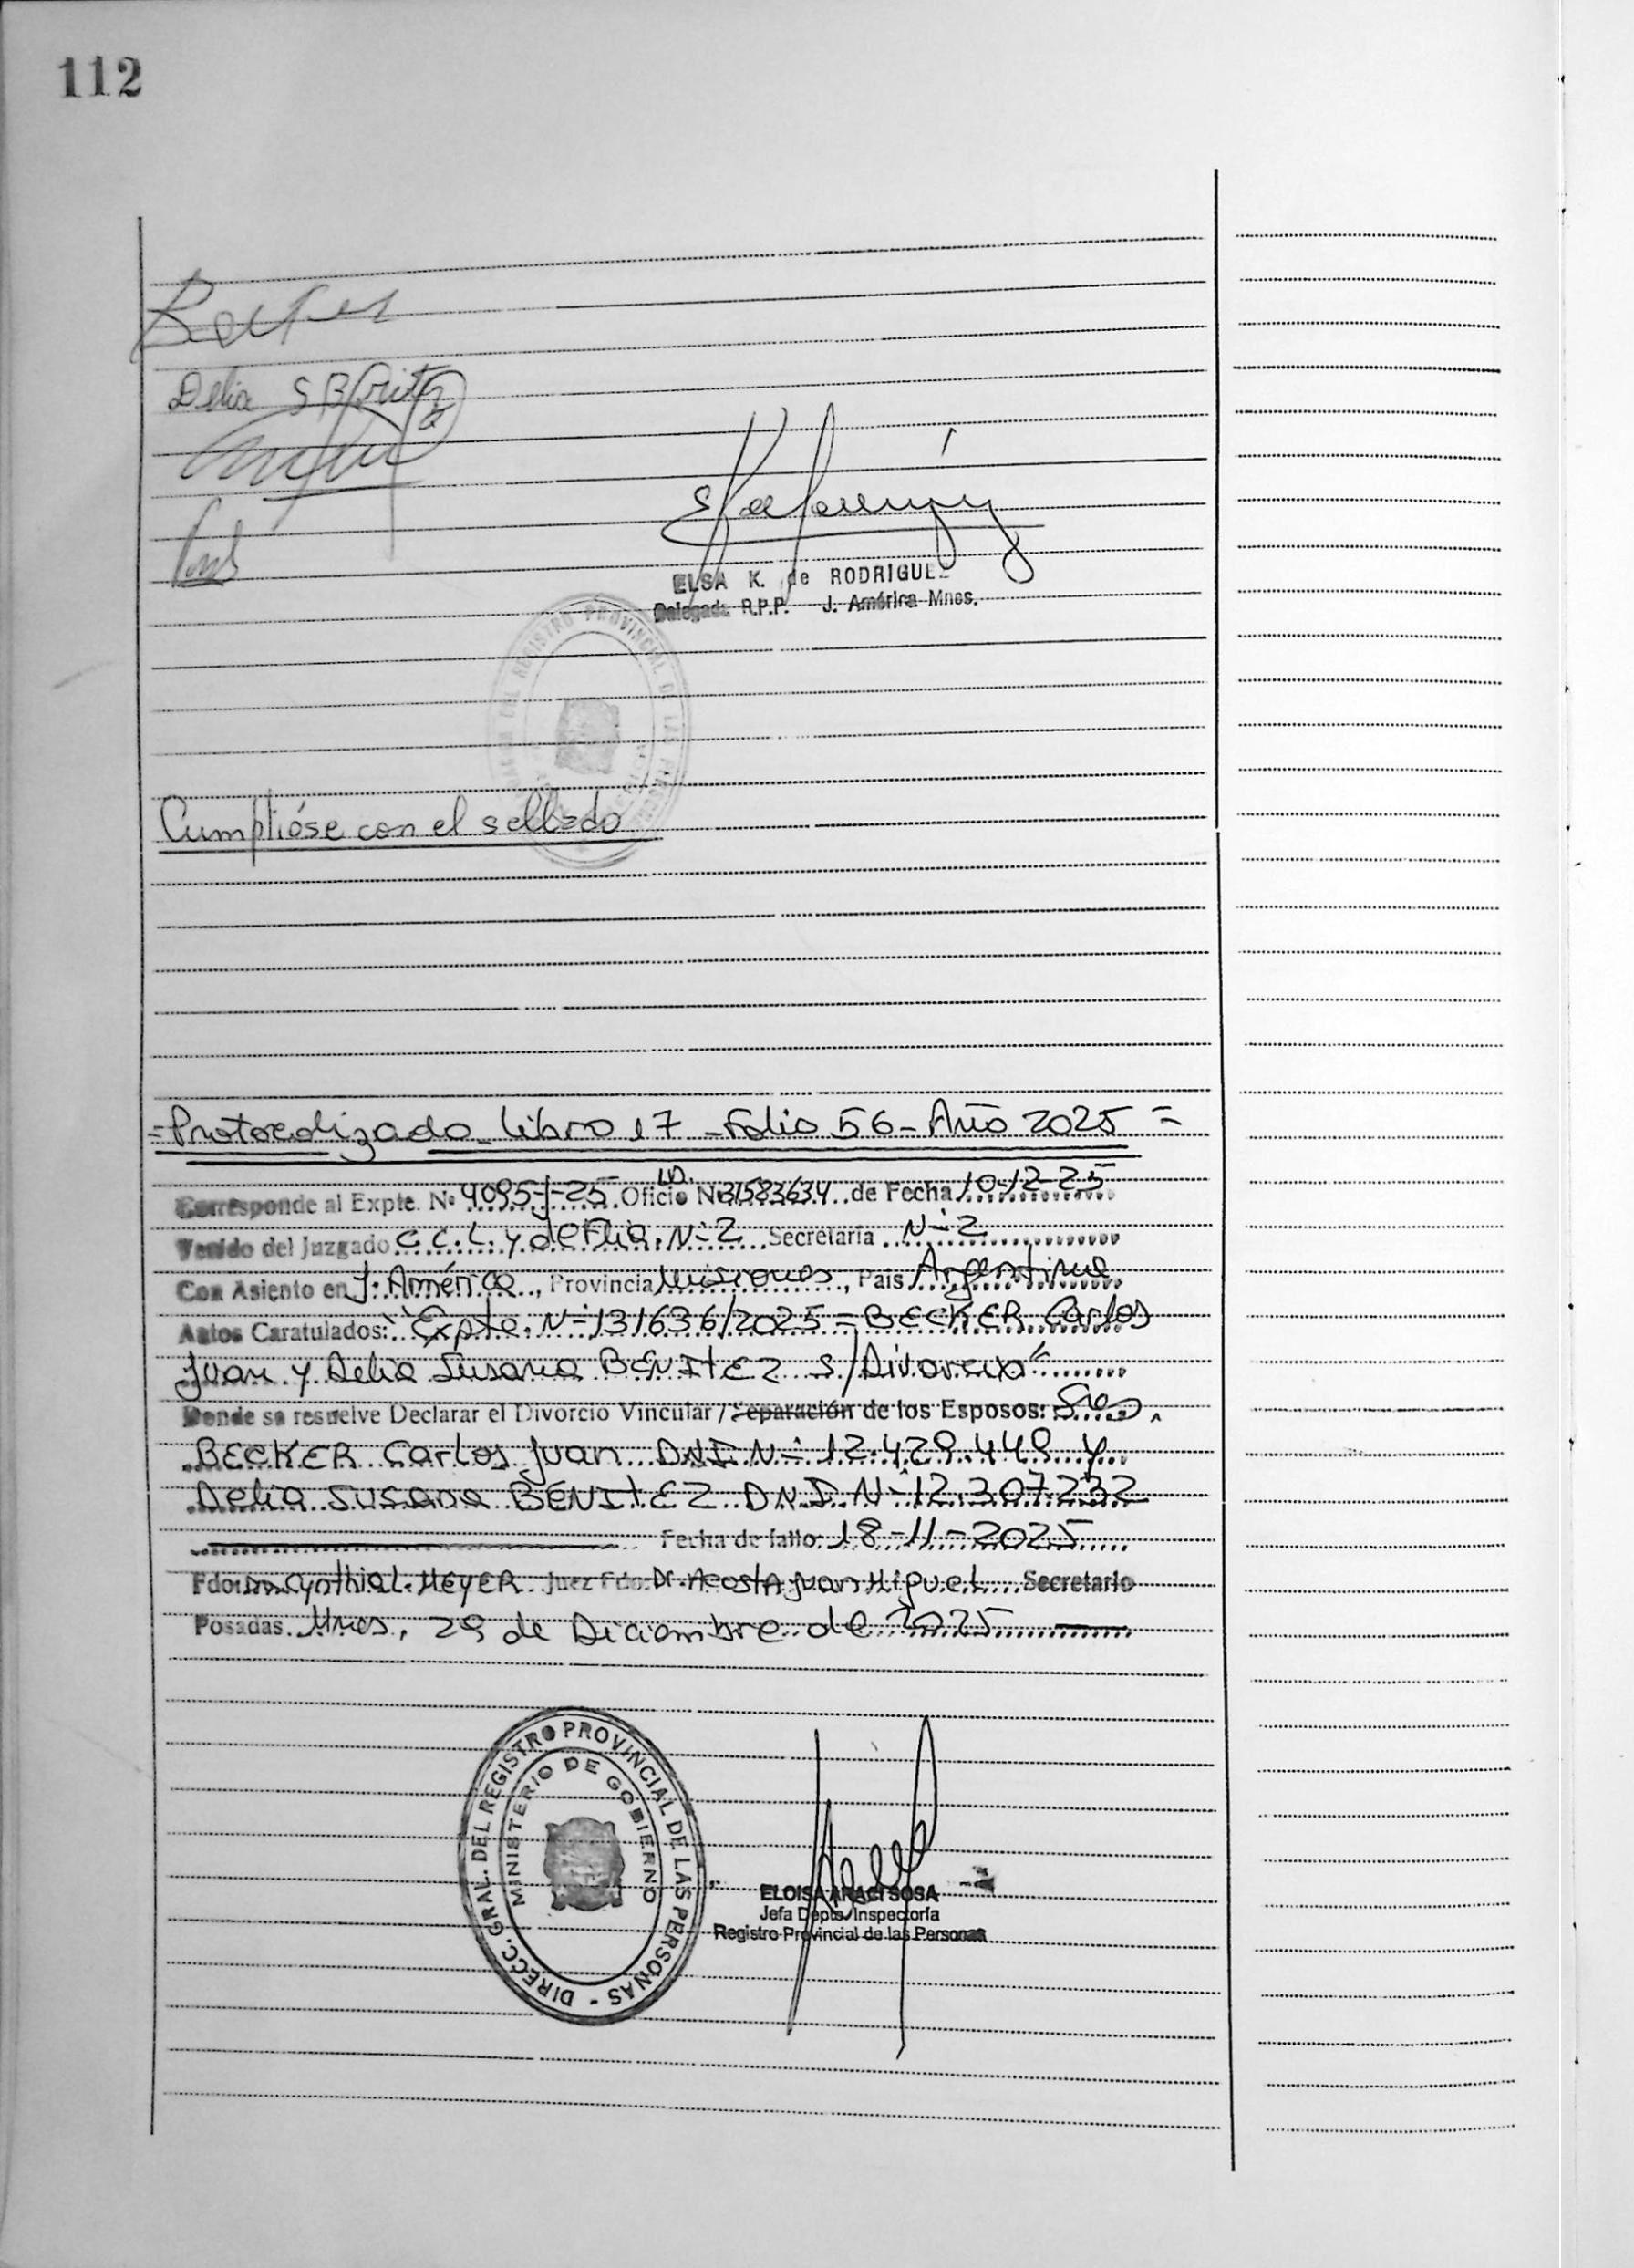 112
Becker
Delia S Benitez
ELSA K. de RODRIGUE
Delegada R.P.P. J. América Mnes.
REGISTRO PROVINCIAL DE LAS
Cumplióse con el sellado
=Protocolizado_Libro 17 _Folio 56_Año 2025=
Corresponde al Expte. Nº 4095-J-25 Oficio L.D. Nº 31583634 de Fecha 10-12-25
Venido del Juzgado C.C.L. y de Flia. Nº2 Secretaría Nº 2
Con Asiento en J. América, Provincia Misiones, País Argentina
Autos Caratulados: "Expte. Nº 131636/2025=BECKER Carlos
Juan y Delia Susana BENITEZ s/Divorcio"
Donde se resuelve Declarar el Divorcio Vincular/Separación de los Esposos: Sres.
BECKER Carlos Juan DNI Nº 12.429.449 y
Delia Susana BENITEZ D.N.I. Nº 12.307.232
Fecha de fallo: 18-11-2025
Fdo: Dra. Cynthia L. MEYER Juez Fdo: Dr. Acosta Juan Miguel Secretario
Posadas Mnes., 29 de Diciembre de 2025
DIRECC. GRAL. DEL REGISTRO PROVINCIAL DE LAS PERSONAS -
MINISTERIO DE GOBIERNO
ELOISA ARACI SOSA
Jefa Depto. Inspectoría
Registro Provincial de las Personas